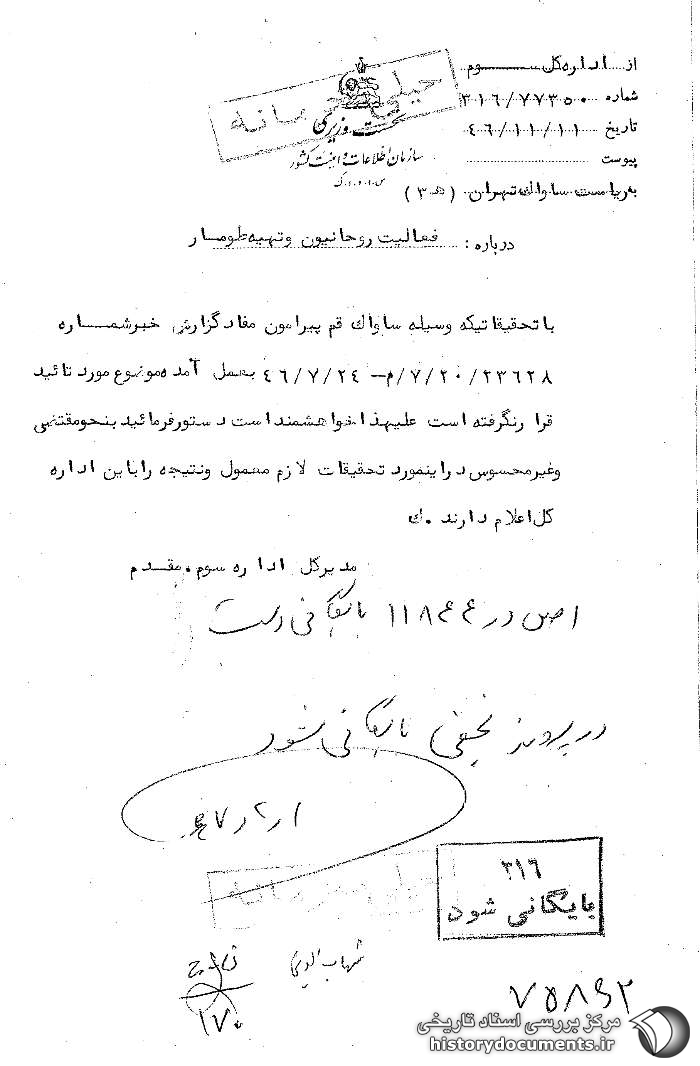 از اداره کل ســــوم
شماره ۳۱۶/۷۷۳۵۰
تاریخ ۴۶/۱۱/۱۱
پیوست
به ریاست ساواک تهران (ه ۳)
خیلی محرمانه
نخست وزیری
سازمان اطلاعات و امنیت کشور
س.ا.و.ا.ک
درباره : فعالیت روحانیون و تهیه طومـار
با تحقیقاتیکه وسیله ساواک قم پیرامون مفاد گزارش خبر شمــاره
۷/۲۰/۲۳۶۲۸/م-- ۴۶/۷/۲۴ بعمل آمده موضوع مورد تائید
قرار نگرفته است علیهذا خواهشمند است دستور فرمائید بنحو مقتضی
و غیر محسوس در اینمورد تحقیقات لازم معمول و نتیجه را باین اداره
کل اعلام دارند . ک
مدیر کل اداره سوم . مقدم
اصل در ۱۱۸۴۴ بایگانی است
در پرونده نجفی بایگانی شود
۳۱۶
بایگانی شود
خیلی محرمانه
شهاب الدین
۱۷۰
۷۵۸۶۲
مرکز بررسی اسناد تاریخی
historydocuments.ir